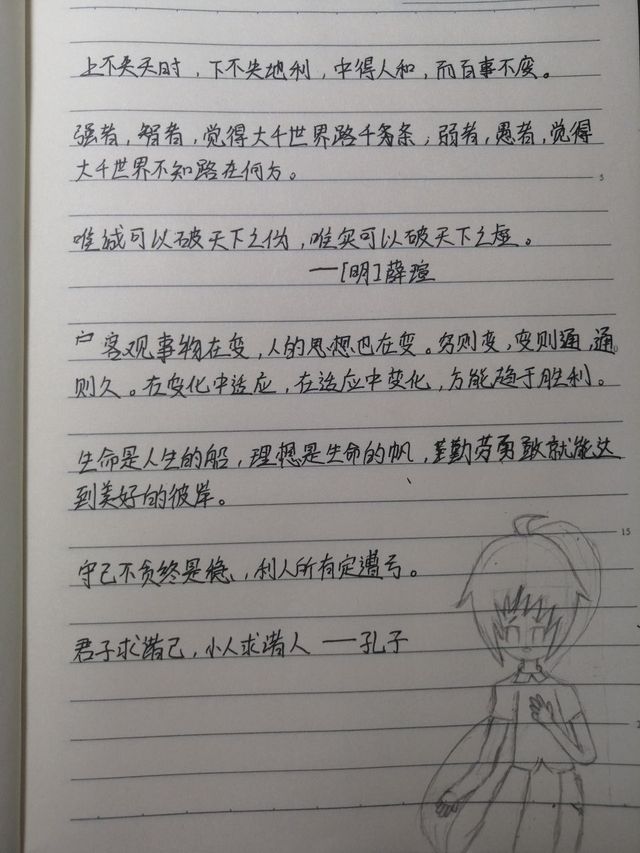 上不失天时，下不失地利，中得人和，而百事不废。
强者，智者，觉得大千世界路千万条；弱者，愚者，觉得
5
大千世界不知路在何方。
唯诚可以破天下之伪，唯实可以破天下之虚。
——[明]薛瑄
客观事物在变，人的思想也在变。穷则变，变则通，通
则久。在变化中适应，在适应中变化，方能趋于胜利。
生命是人生的船，理想是生命的帆，勤劳勇敢就能达
到美好的彼岸。
15
守己不贪终是稳，利人所有定遭亏。
君子求诸己，小人求诸人 ——孔子